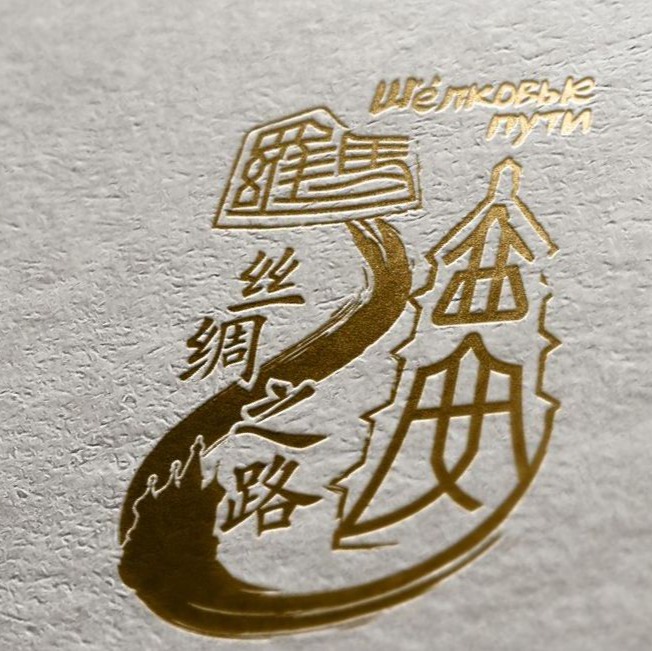 Шёлковые
пути
羅馬
丝绸之路
西安